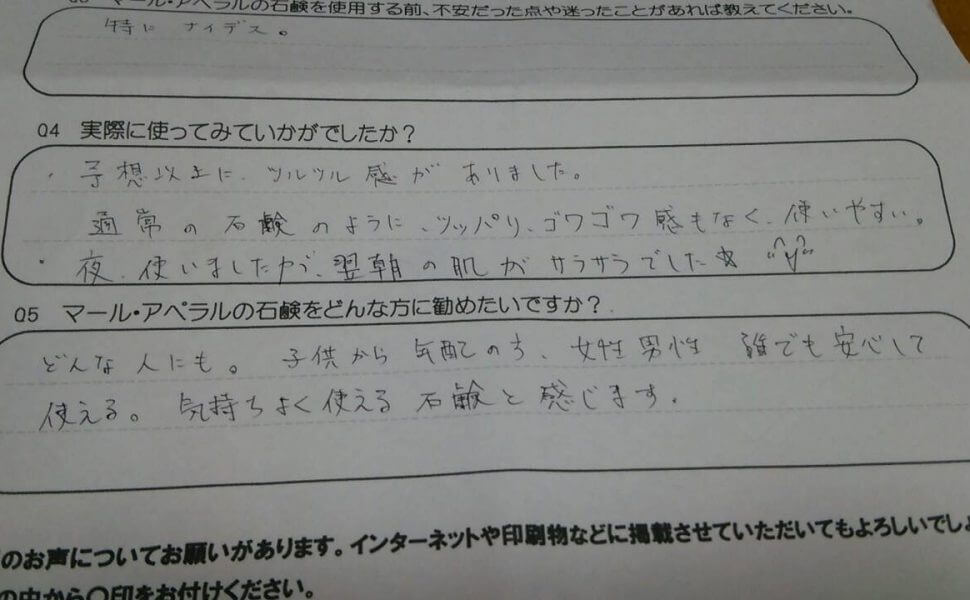 マール・アペラルの石鹸を使用する前、不安だった点や迷ったことがあれば教えてください。
特に ナイデス。
Q4 実際に使ってみていかがでしたか？
・予想以上に、ツルツル感が ありました。
通常の石鹸のように、ツッパリ、ゴワゴワ感もなく、使いやすい。
・夜、使いましたが、翌朝の肌が サラサラでした☆
Q5 マール・アペラルの石鹸をどんな方に勧めたいですか？
どんな人にも。 子供から 気配の方、女性男性 誰でも安心して
使える。気持ちよく使える 石鹸と感じます。
のお声についてお願いがあります。インターネットや印刷物などに掲載させていただいてもよろしいでしょ
の中から〇印をお付けください。